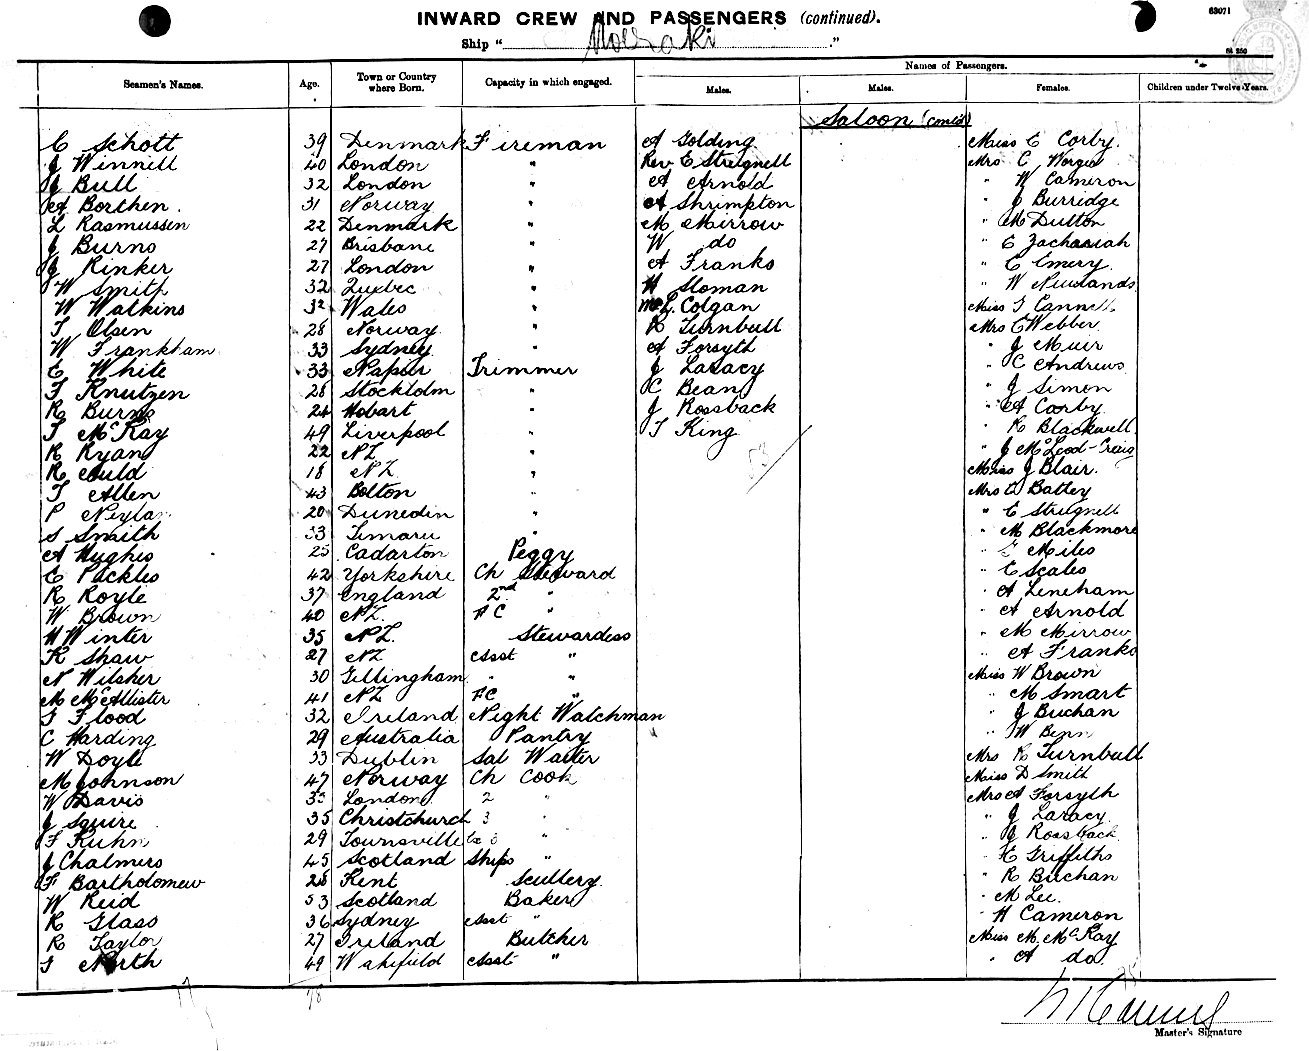 INWARD CREW AND PASSENGERS (continued).
63071
Ship " Moeraki ."
Names of Passengers.
Seamen's Names. Age. Town or Country where Born. Capacity in which engaged. Males. Males. Females. Children under Twelve Years.
Saloon (contd)
C Schott 39 Denmark Fireman A Golding Miss E Corby
J Winnell 40 London " Rev E Strugnell Mrs C Worger
J Bull 32 London " A Arnold " W Cameron
A Borthen 31 Norway " A Shrimpton " J Burridge
L Rasmussen 22 Denmark " M Mirrow " M Dutton
J Burns 27 Brisbane " W do " E Zachariah
J Rinker 27 London " A Franks " E Emery
W Smith 32 Quebec " H Sloman " W Newlands
W Watkins 32 Wales " Colgan Miss T Cannell
T Olsen 28 Norway " R Turnbull Mrs E Webber
W Frankham 33 Sydney " A Forsyth " J Muir
C White 33 Napier Trimmer J Laracy " C Andrews
F Knutzen 28 Stockholm " C Bean " J Simon
R Burns 24 Hobart " J Rossback " A Corby
T McKay 49 Liverpool " T King " R Blackwell
R Ryan 22 NZ " " J McLeod-Craig
R Auld 18 NZ " Miss J Blair
T Allen 43 Bolton " Mrs E Battey
P 20 Dunedin " " E Strugnell
S Smith 33 Timaru " " M Blackmore
A Hughes 25 Cadarton Peggy " Miles
E Pickles 42 Yorkshire Ch Steward " E Scales
R Royle 37 England 2nd " " A Leneham
W Brown 40 NZ FC " " A Arnold
H Winter 35 NZ Stewardess " M Mirrow
K Shaw 27 NZ Asst " " A Franks
N Wilsher 30 Gillingham " " Miss W Brown
M McAllister 41 NZ FC " " M Smart
T Flood 32 Ireland Night Watchman " J Buchan
C Harding 29 Australia Pantry " W Benn
W Doyle 33 Dublin Sal Waiter Mrs R Turnbull
M Johnson 47 Norway Ch Cook Miss D Smith
W Davis 33 London 2 " Mrs A Forsyth
J Squire 35 Christchurch 3 " " J Laracy
F Kuhn 29 Townsville Ex 3 " " J Rossback
J Chalmers 45 Scotland Ships " " H Griffiths
F Bartholomew 28 Kent Scullery " R Buchan
W Reid 53 Scotland Baker " M Lee
R Glass 36 Sydney Asst " " H Cameron
R Taylor 27 Ireland Butcher Miss M McKay
T North 49 Wakefield Asst " " A do
53
78
Master's Signature